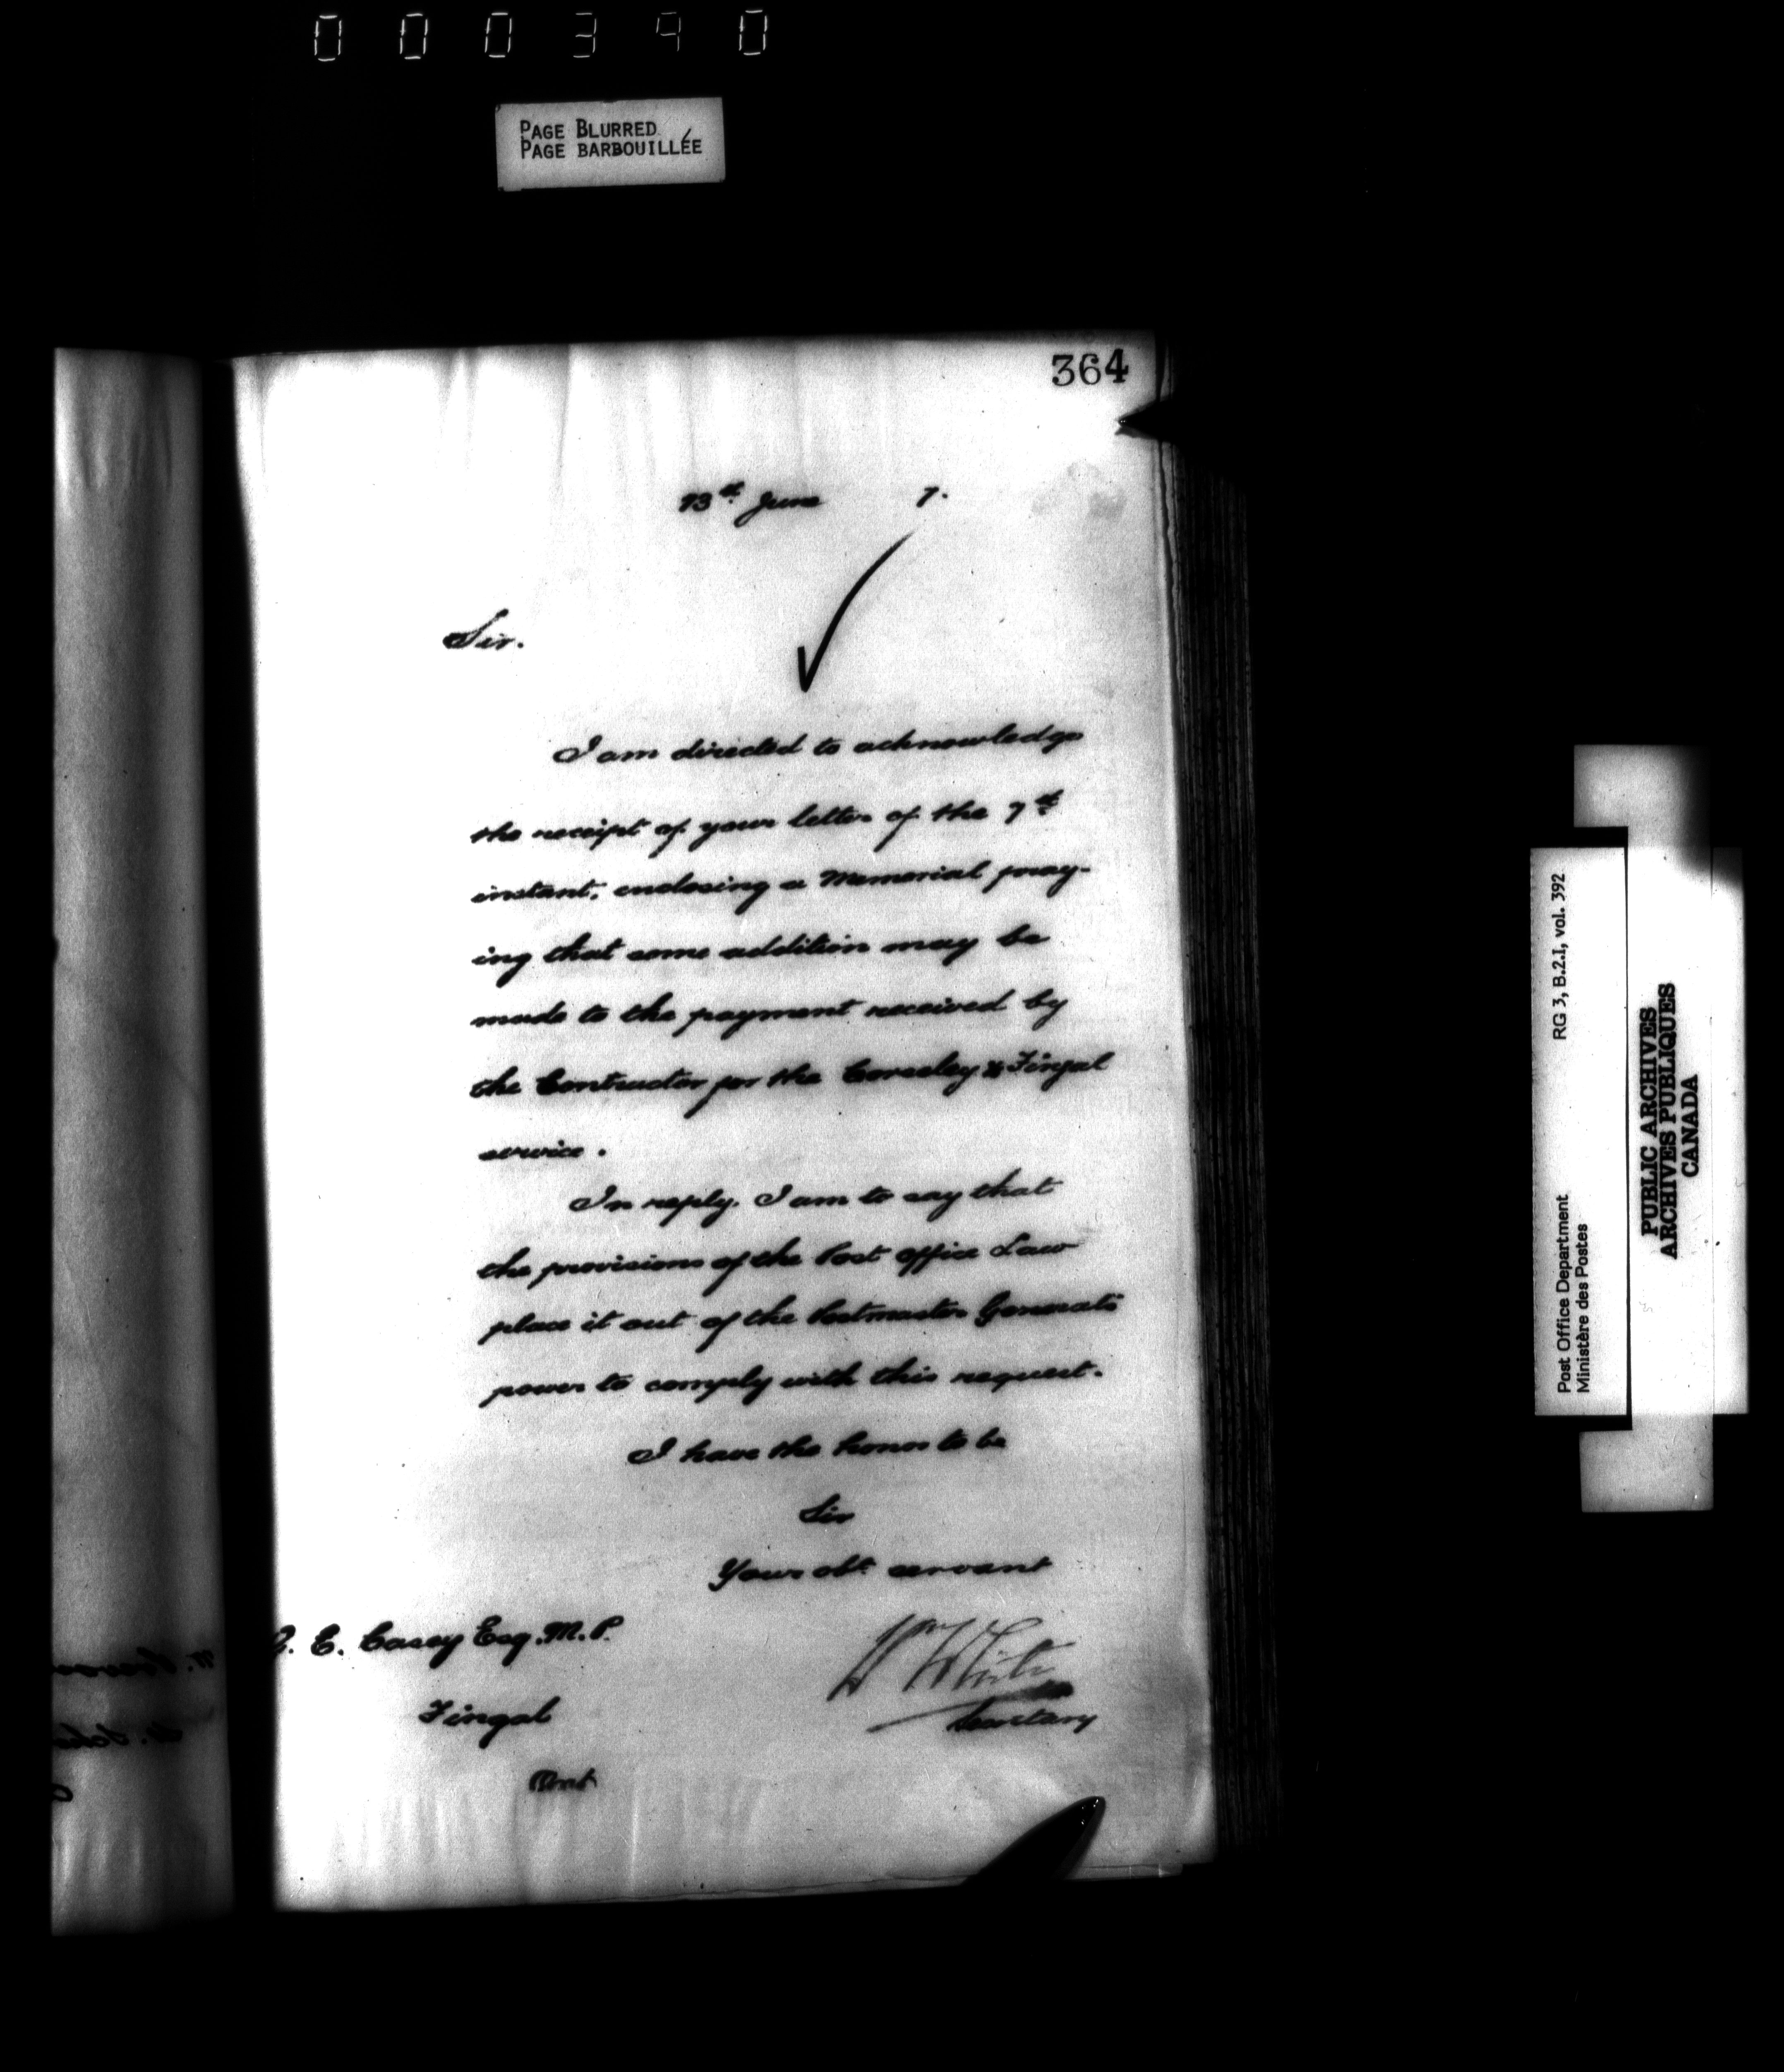 000390
PAGE BLURRED
PAGE BARBOUILLÉE
364
13th June 7.
Sir.
I am directed to acknowledge
the receipt of your letter of the 7th
instant, enclosing a Memorial pray-
ing that some addition may be
made to the payment received by
the Contractor for the Cowley & Fingal
service.
In reply, I am to say that
the provisions of the Post Office Law
place it out of the Postmaster Generals
power to comply with this request.
I have the honor to be
Sir
Your obt. servant
G. E. Casey Esq. M.P.
Wm White
Secretary
Fingal
Ont
Post Office Department RG 3, B.2.1, vol. 392
Ministère des Postes
PUBLIC ARCHIVES
ARCHIVES PUBLIQUES
CANADA